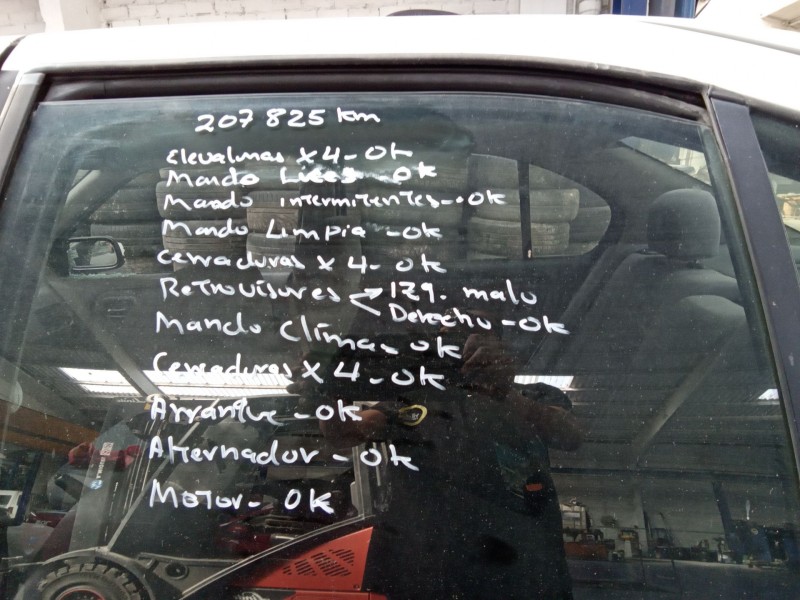 207825 km
Elevalunas x4-ok
Mando Luces-ok
Mando intermitentes-ok
Mando Limpia-ok
Cerraduras x4-ok
Retrovisores → izq. malo
Derecho-ok
Mando Clima-ok
Cerraduras x4-ok
Arranque-ok
Alternador-ok
Motor-ok